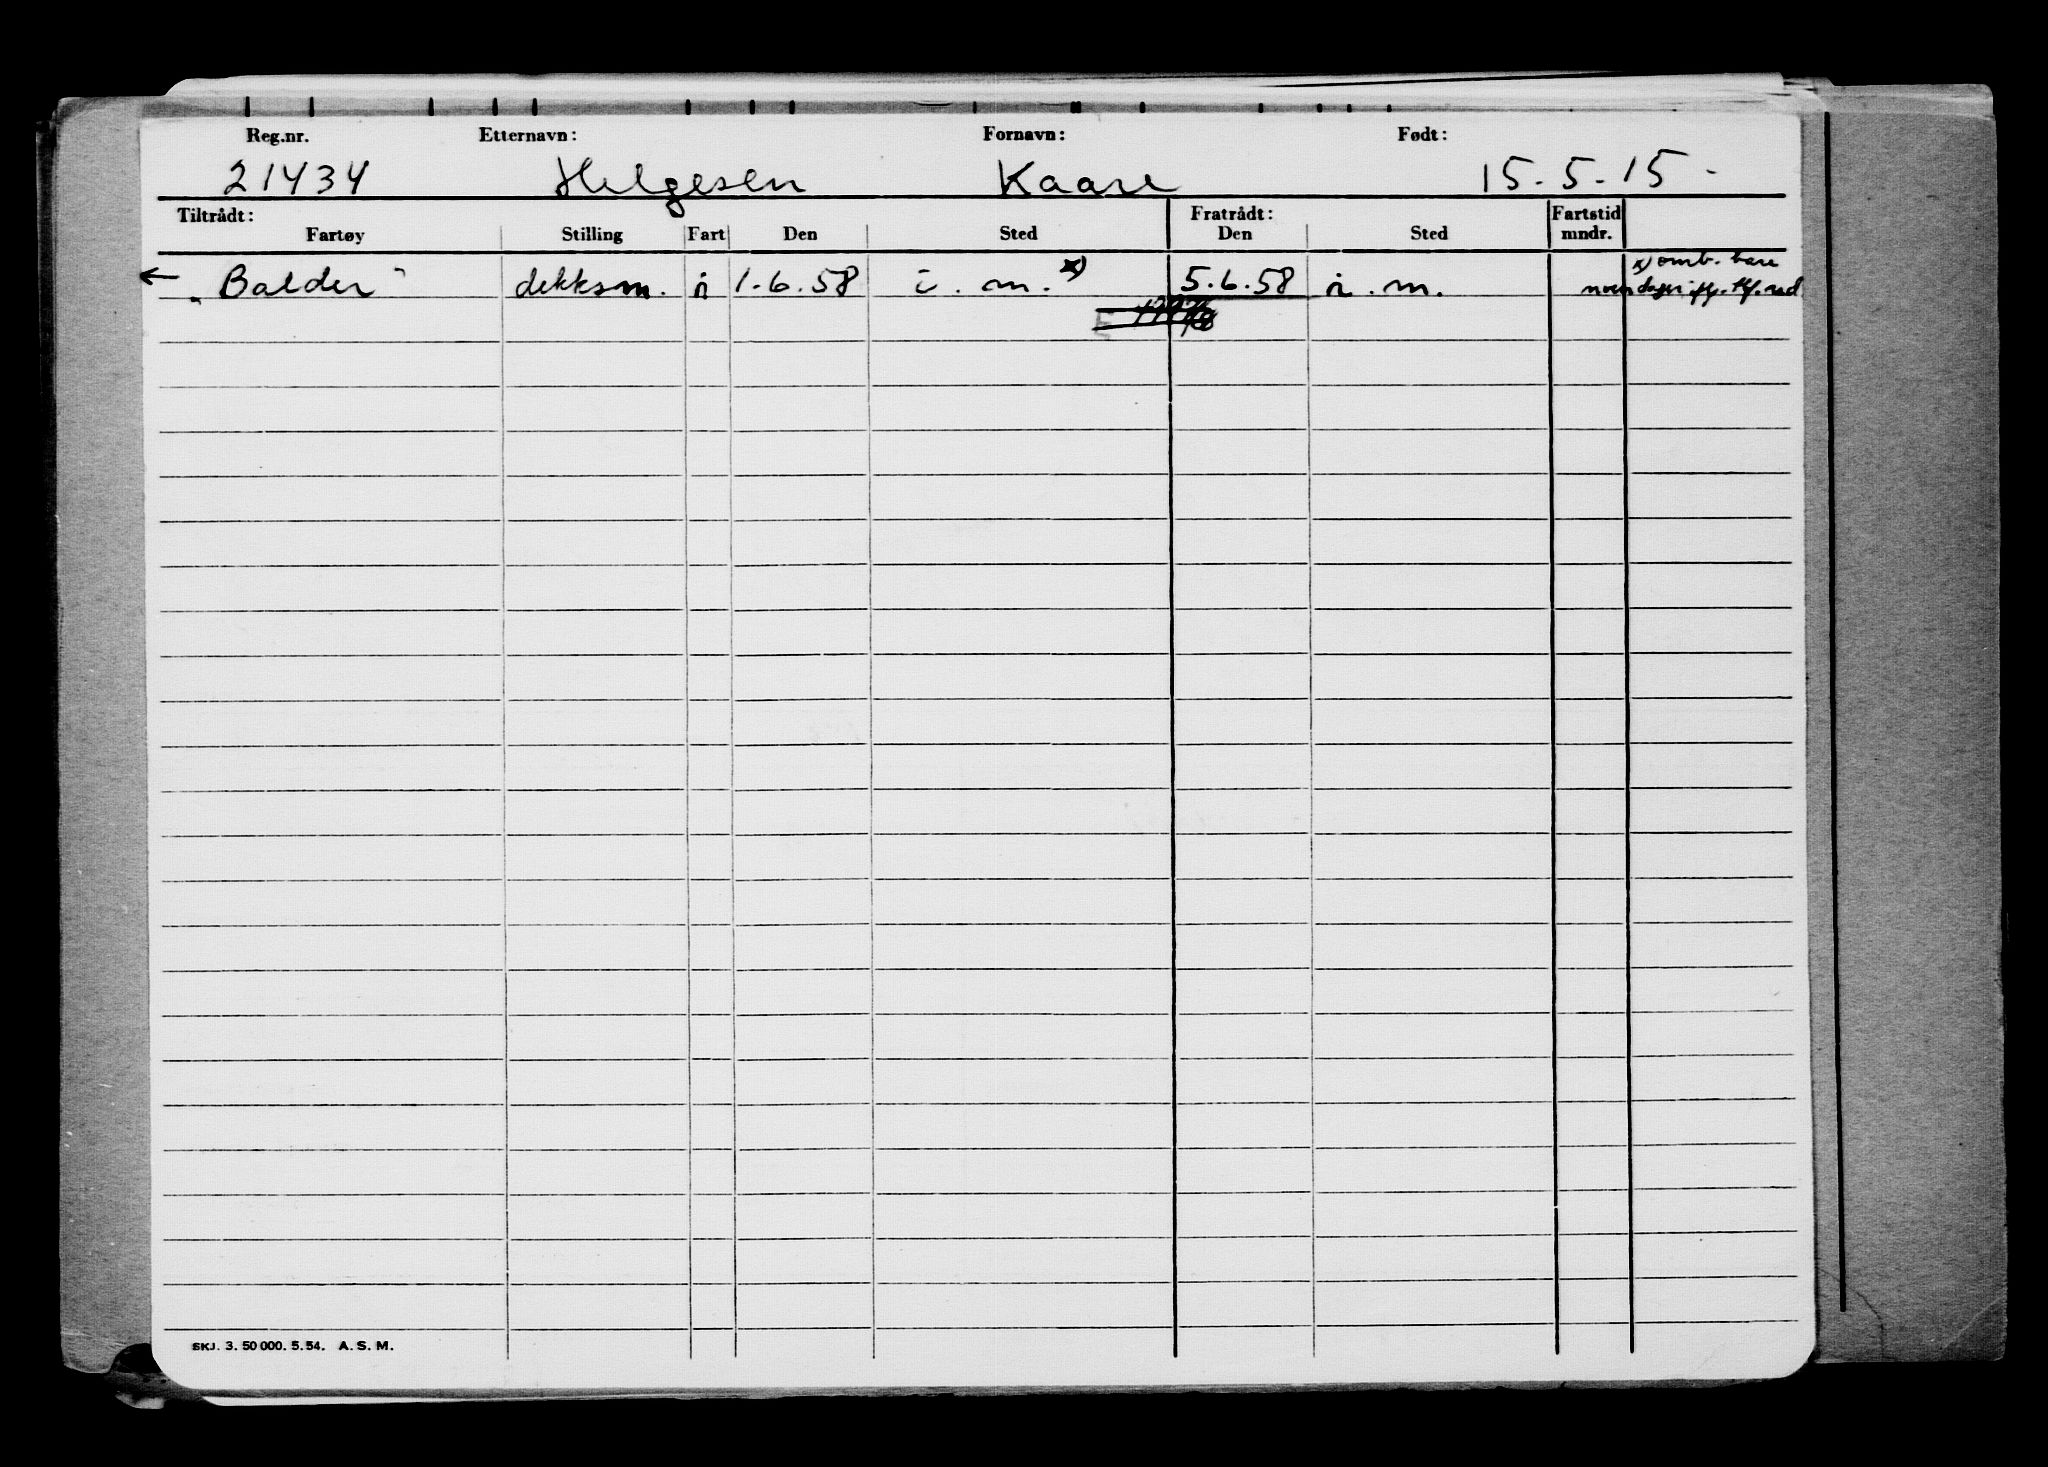 Reg.nr. Etternavn: Fornavn: Født:
21434 Helgesen Kaare 15-5-15-
Tiltrådt: Fratrådt: Fartstid
Fartøy Stilling Fart Den Sted Den Sted mndr.
← „Balder" dekksm. i 1.6.58 i. m. x) 5.6.58 i. m. x) omb. bare
noen dager iflg. tlf. red
SKJ. 3. 50 000. 5. 54. A. S. M.